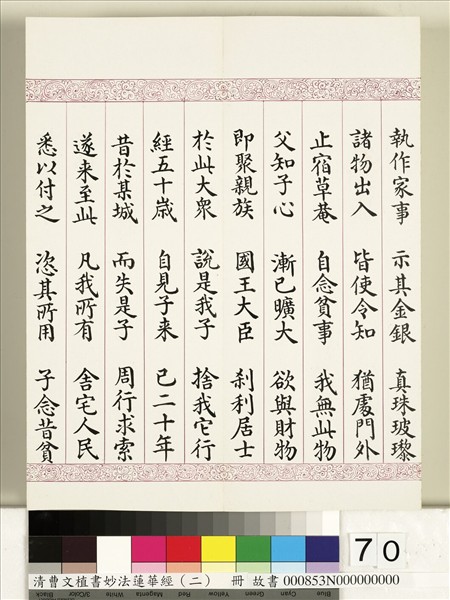 執作家事 示其金銀 真珠玻瓈
諸物出入 皆使令知 猶處門外
止宿草菴 自念貧事 我無此物
父知子心 漸已曠大 欲與財物
即聚親族 國王大臣 刹利居士
於此大衆 說是我子 捨我它行
經五十歲 自見子来 已二十年
昔於某城 而失是子 周行求索
遂来至此 凡我所有 舍宅人民
悉以付之 恣其所用 子念昔貧
70
清曹文植書妙法蓮華經（二） 冊 故書 000853N000000000
Black 3/Color White Magenta Red Yellow Green Cyan Blue